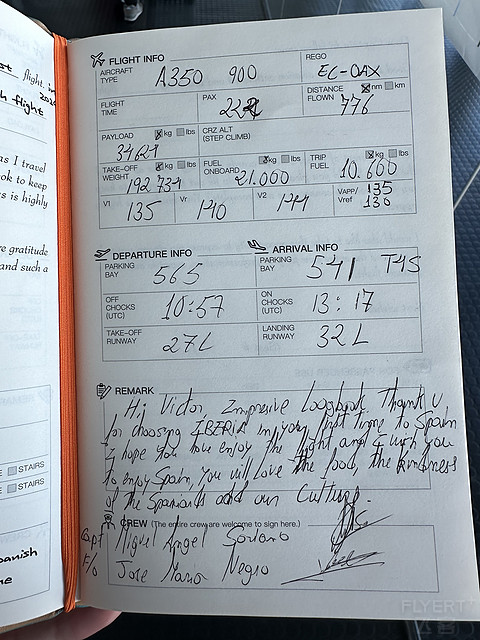 st flight, in
2024
h flight
as I travel
ok to keep
s is highly
e gratitude
and such a
E STAIRS
E STAIRS
panish
ne
FLIGHT INFO
AIRCRAFT TYPE A350 900 REGO EC-OAX
FLIGHT TIME PAX DISTANCE FLOWN nm km 776
PAYLOAD kg lbs CRZ ALT (STEP CLIMB)
TAKE-OFF WEIGHT kg lbs 192 734 FUEL ONBOARD kg lbs 21.000 TRIP FUEL kg lbs 10.600
V1 135 Vr 140 V2 144 VAPP/Vref 135 130
DEPARTURE INFO
PARKING BAY 565
OFF CHOCKS (UTC) 10:57
TAKE-OFF RUNWAY 27L
ARRIVAL INFO
PARKING BAY 541 T4S
ON CHOCKS (UTC) 13:17
LANDING RUNWAY 32L
REMARK
Hi Victor, Impresive Loogbook. Thank U
for choosing IBERIA in your first time to Spain
I hope you have enjoy the flight and I wish you
to enjoy Spain, You will love the food, the kindness
of the Spaniards and our Culture.
CREW (The entire crew are welcome to sign here.)
Capt Miguel Angel Soriano
F/O Jose Maria Negro
FLYERT